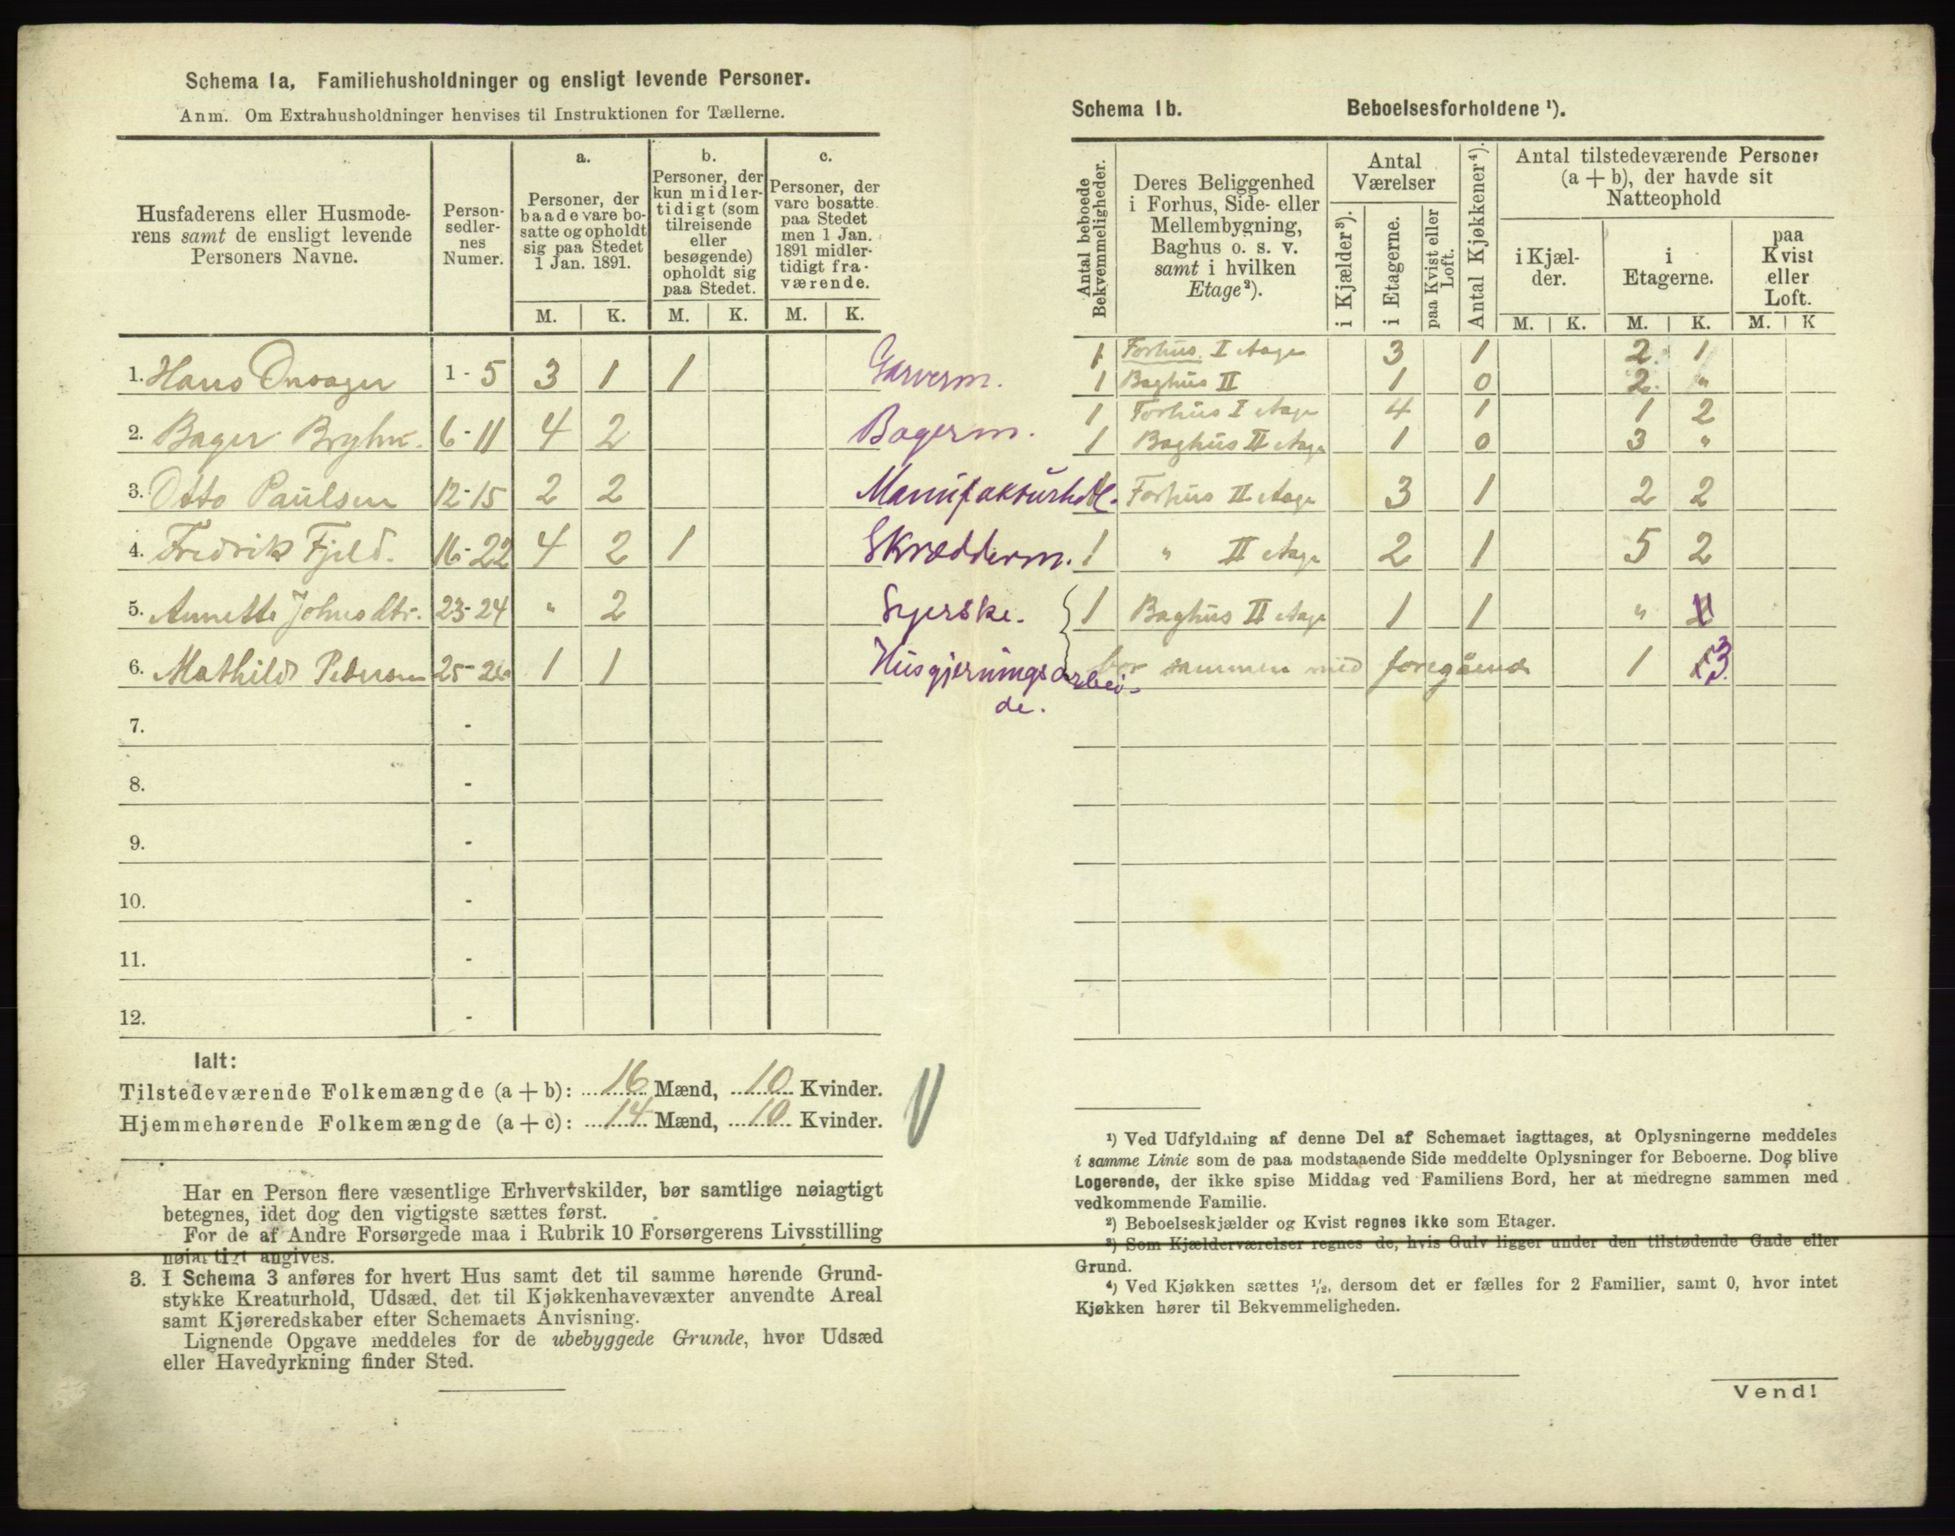 Schema 1a, Familiehusholdninger og ensligt levende Personer.
Anm. Om Extrahusholdninger henvises til Instruktionen for Tællerne.
Husfaderens eller Husmode-
rens samt de ensligt levende
Personers Navne.
Person-
sedler-
nes
Numer.
a.
Personer, der
baade vare bo-
satte og opholdt
sig paa Stedet
1 Jan. 1891.
b.
Personer, der
kun midler-
tidigt (som
tilreisende
eller
besøgende)
opholdt sig
paa Stedet.
c.
Personer, der
vare bosatte
paa Stedet
men 1 Jan.
1891 midler-
tidigt fra-
værende.
M. K. M. K. M. K.
1. Hans 1 - 5 3 1 1 Garverm.
2. Bager 6 - 11 4 2 Bagerm.
3. Otto Paulsen 12 - 15 2 2 Manufakturhdl.
4. Fredrik Fjeld. 16 - 22 4 2 1 Skrædderm.
5. Annette Johnsdtr. 23 - 24 " 2 Syerske.
6. Mathilde Pedersen 25 - 26 1 1 Husgjerningsarbei-
de.
7. -
8. -
9. -
10. -
11. -
12. -
Ialt:
Tilstedeværende Folkemængde (a + b): 16 Mænd, 10 Kvinder.
Hjemmehørende Folkemængde (a + c): 14 Mænd, 10 Kvinder.
Har en Person flere væsentlige Erhvervskilder, bør samtlige nøiagtigt
betegnes, idet dog den vigtigste sættes først.
For de af Andre Forsørgede maa i Rubrik 10 Forsørgerens Livsstilling
nøiagtigt angives.
3. I Schema 3 anføres for hvert Hus samt det til samme hørende Grund-
stykke Kreaturhold, Udsæd, det til Kjøkkenhavevæxter anvendte Areal
samt Kjøreredskaber efter Schemaets Anvisning.
Lignende Opgave meddeles for de ubebyggede Grunde, hvor Udsæd
eller Havedyrkning finder Sted.
Schema 1b. Beboelsesforholdene ¹).
Antal beboede
Bekvemmeligheder.
Deres Beliggenhed
i Forhus, Side- eller
Mellembygning,
Baghus o. s. v.
samt i hvilken
Etage²).
Antal
Værelser
i Kjælder³).
i Etagerne.
paa Kvist eller
Loft.
Antal Kjøkkener⁴).
Antal tilstedeværende Personer
(a + b), der havde sit
Natteophold
i Kjæl-
der.
i
Etagerne.
paa
Kvist
eller
Loft.
M. K. M. K. M. K
1 Forhus I Etage 3 1 2 1
1 Baghus II 1 0 2 "
1 Forhus I Etage 4 1 1 2
1 Baghus II Etage 1 0 3 "
1 Forhus II Etage 3 1 2 2
1 " II Etage 2 1 5 2
1 Baghus II Etage 1 1 "
bor sammen med foregående 1 3
¹) Ved Udfyldning af denne Del af Schemaet iagttages, at Oplysningerne meddeles
i samme Linie som de paa modstaaende Side meddelte Oplysninger for Beboerne. Dog blive
Logerende, der ikke spise Middag ved Familiens Bord, her at medregne sammen med
vedkommende Familie.
²) Beboelseskjælder og Kvist regnes ikke som Etager.
³) Som Kjælderværelser regnes de, hvis Gulv ligger under den tilstødende Gade eller
Grund.
⁴) Ved Kjøkken sættes ½, dersom det er fælles for 2 Familier, samt 0, hvor intet
Kjøkken hører til Bekvemmeligheden.
Vend!